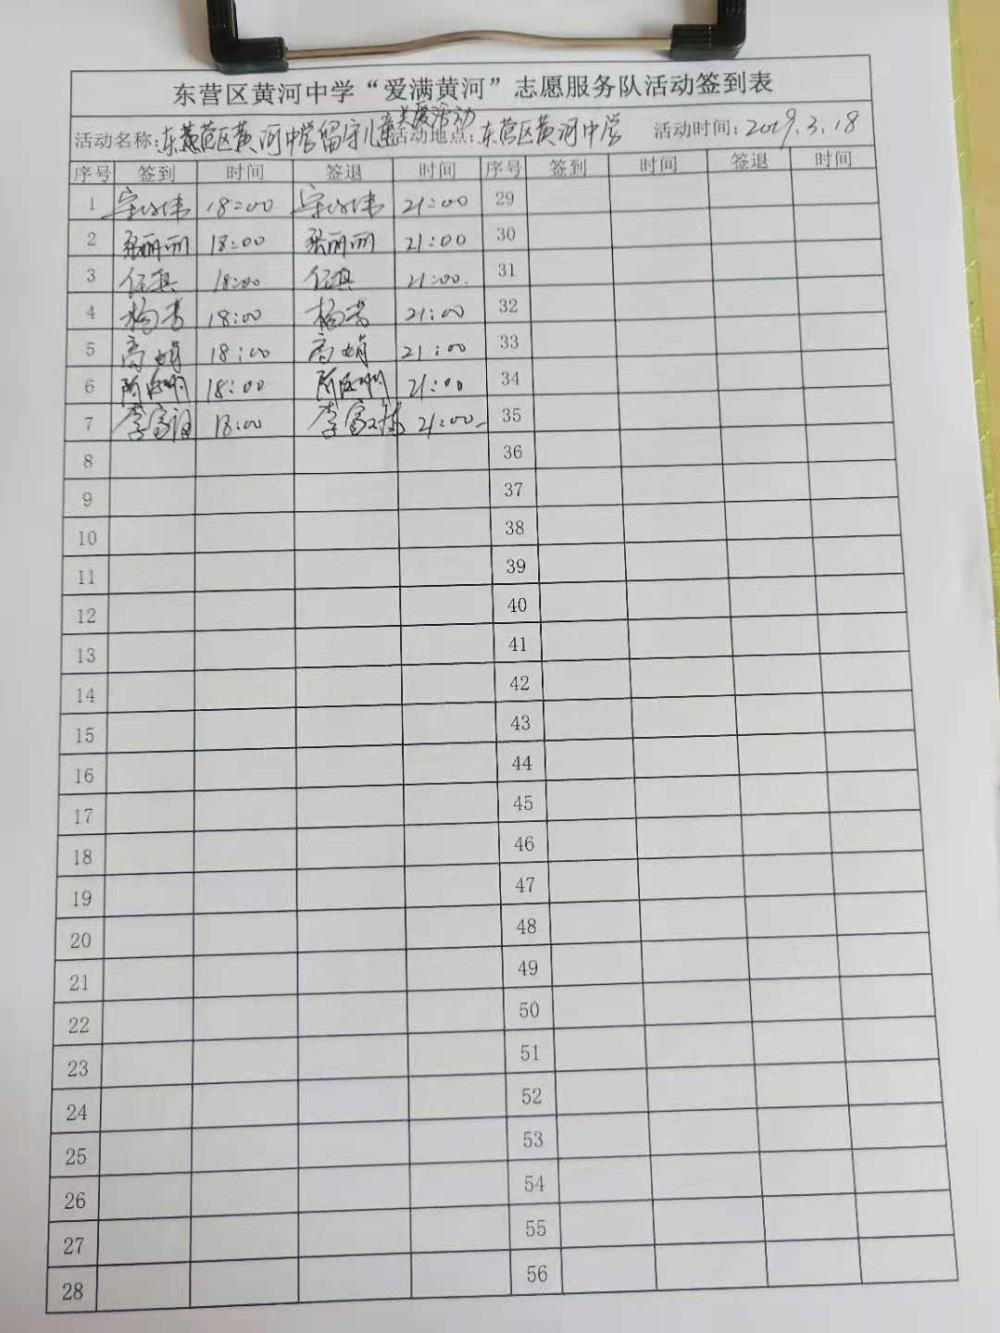 东营区黄河中学“爱满黄河”志愿服务队活动签到表
活动名称:东营区黄河中学留守儿童关爱活动 活动地点:东营区黄河中学 活动时间:2019.3.18
序号 签到 时间 签退 时间 序号 签到 时间 签退 时间
1 18:00 21:00 29
2 18:00 21:00 30
3 18:00 21:00. 31
4 杨青 18:00 杨青 21:00 32
5 高娟 18:00 高娟 21:00 33
6 18:00 21:00 34
7 18:00 21:00 35
8 36
9 37
10 38
11 39
12 40
13 41
14 42
15 43
16 44
17 45
18 46
19 47
20 48
21 49
22 50
23 51
24 52
25 53
26 54
27 55
28 56